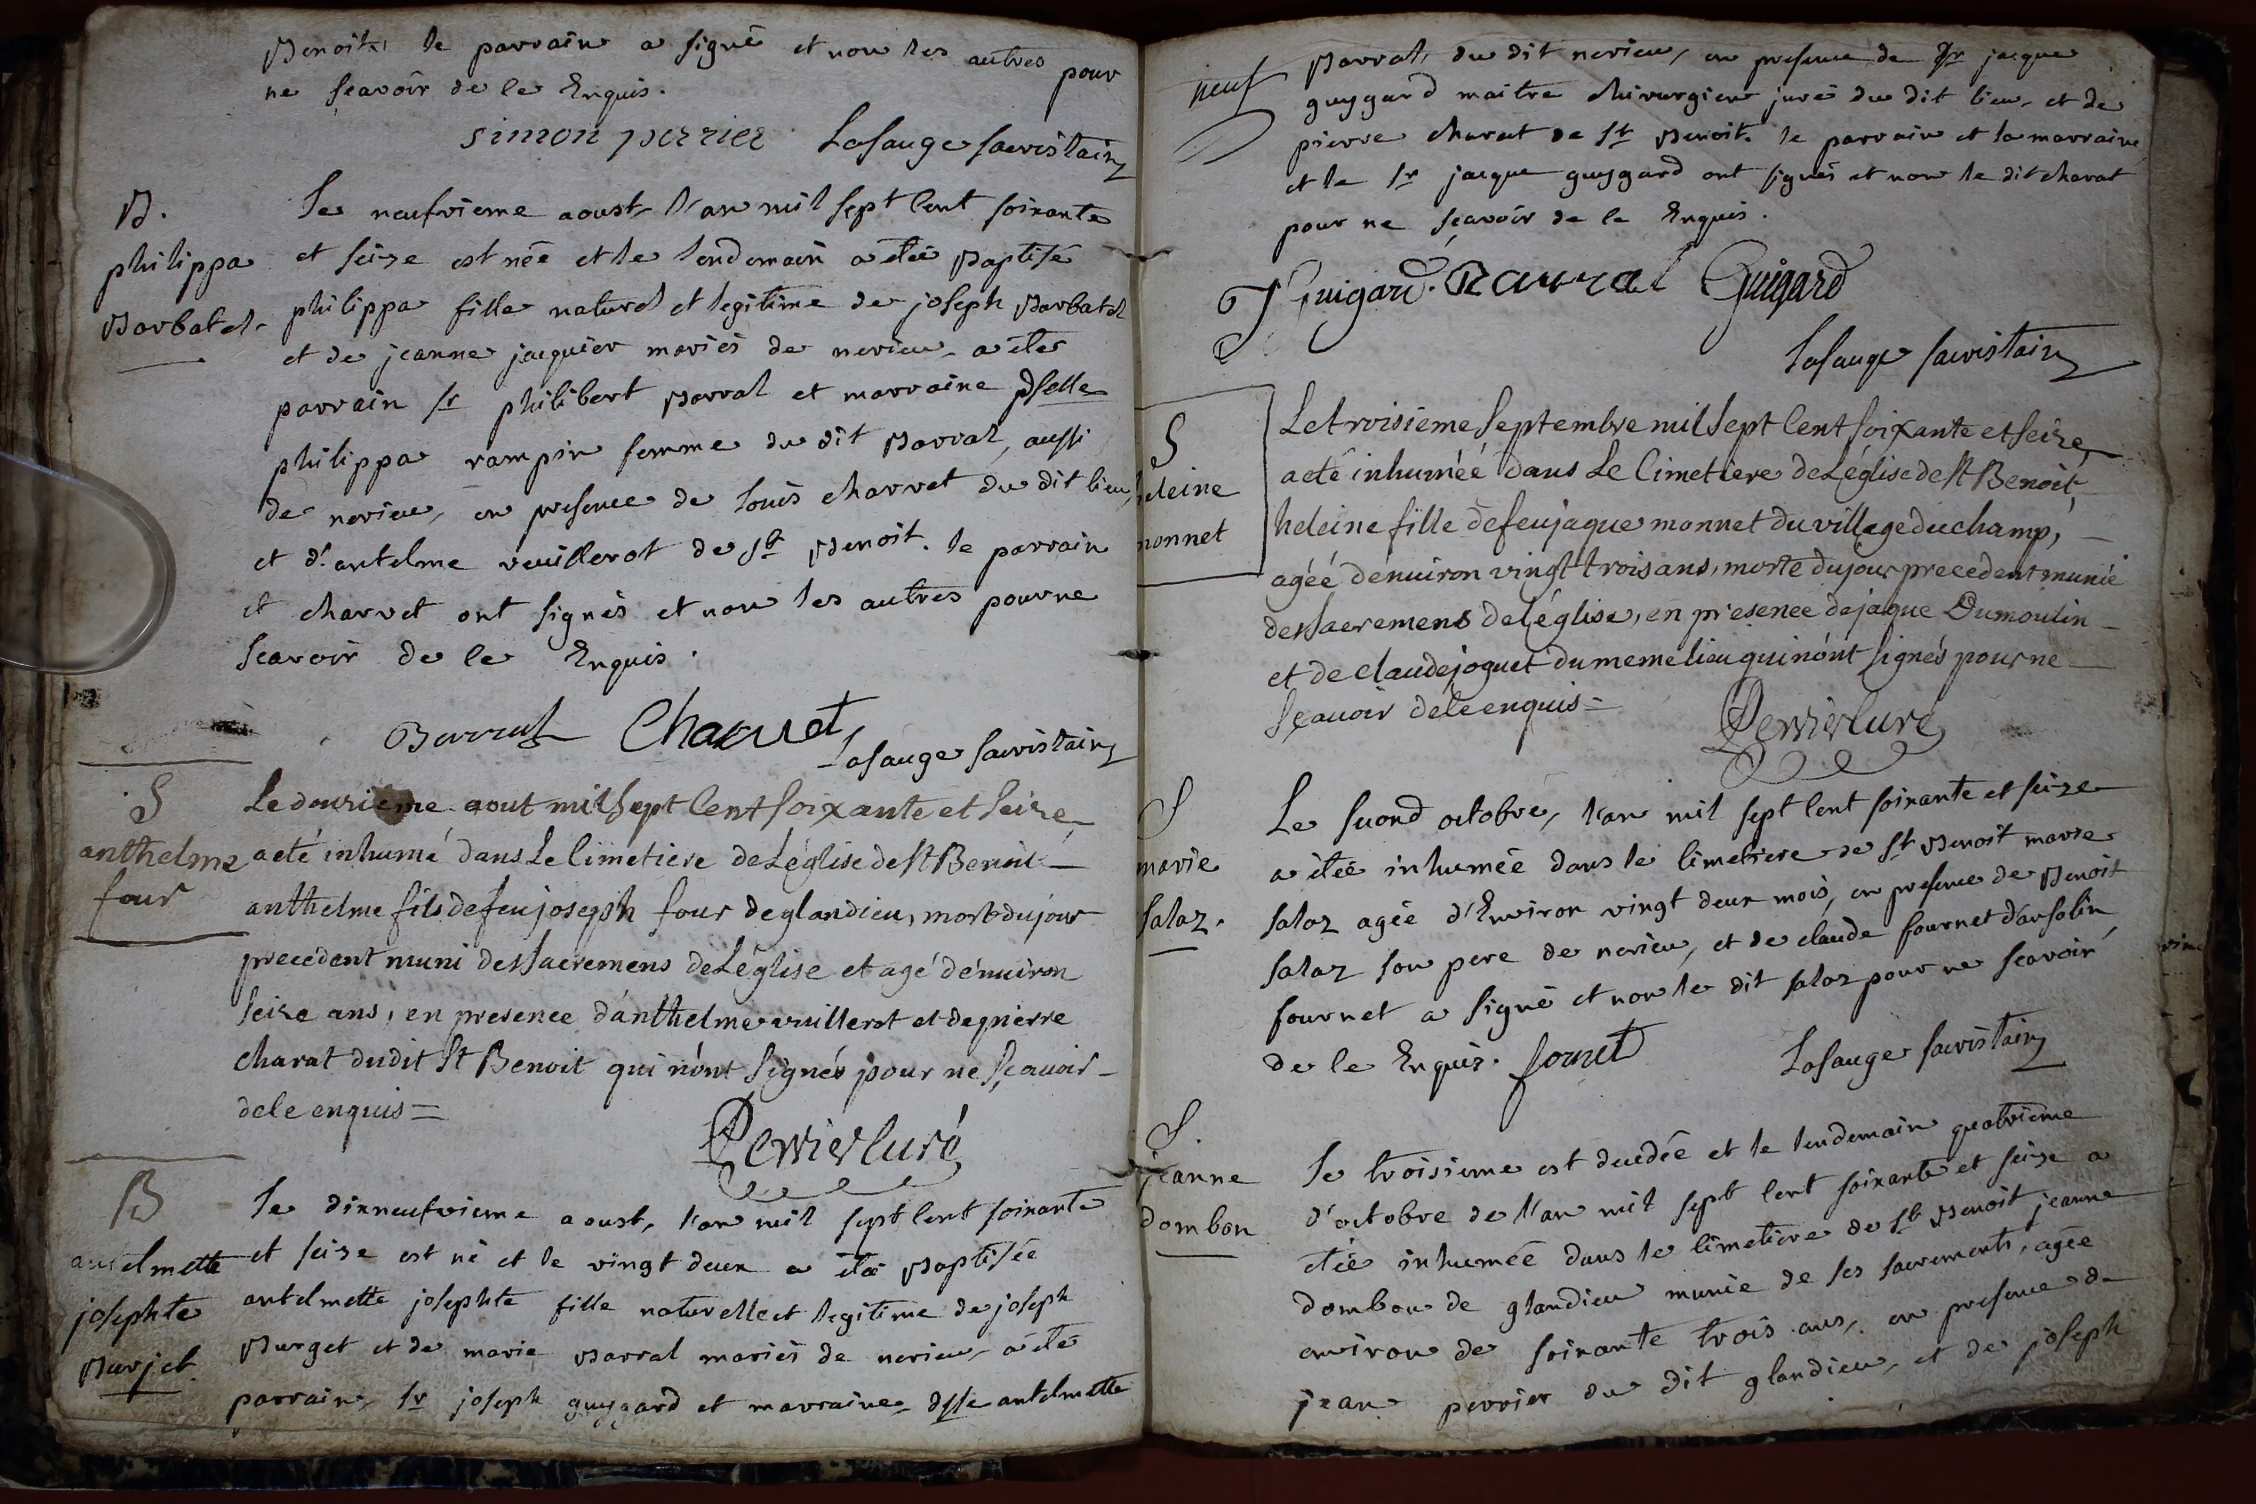 Benoit, le parrain a signé et non les autres pour
ne sçavoir de ce Enquis.
simon perrier Lasauge sacristain
B.
philippa
Barbatel
Le neufvieme aoust, l'an mil sept cent soixante
et seize est née et le lendemain a étée Baptisé
philippa fille naturel et legitime de joseph Barbatel
et de jeanne jacquier mariés de nerieu, a été
parrain sr philibert Barral et marraine dselle
philippa rampin femme du dit Barral, aussi
de nerieu, en presence de louis charvet du dit lieu,
et d'antelme veuillerot de St Benoit. le parrain
et charvet ont signés et non les autres pour ne
scavoir de ce Enquis.
Barral Charvet
Lasauge sacristain
S
anthelme
four
Le douzieme aout mil sept cent soixante et seize
a eté inhumé dans le Cimetiere de L'église de st Benoit
anthelme fils de feu joseph four de glandieu, mort du jour
precedent muni des sacremens de L'église et agé d'enuiron
seize ans, en presence d'anthelme vuillerot et de pierre
charat dudit st Benoit qui n'ont signés pour ne sçauoir
de ce enquis =
Perrier Curé
B
antelmette
josephte
Burjet
Le dixneufvieme aoust, l'an mil sept cent soixante
et seize est né et le vingt deux a été Baptisée
antelmette josephte fille naturelle et legitime de joseph
Burget et de marie Barral mariés de nerieu, a été
parrain, sr joseph guygard et marraine dlle antelmette
neuf
Barral, du dit nerieu, en presence de Sr jacque
guygard maitre chirurgien juré du dit lieu, et de
pierre charat de St Benoit. le parrain et la marraine
et le sr jacque guygard ont signés et non le dit charat
pour ne sçavoir de ce Enquis.
J Guigard. Barral Guigard
Lasauge sacristain
S
heleine
monnet
Le troisieme septembre mil sept Cent soixante et seize
a eté inhuméé dans Le Cimetiere de L'église de st Benoit
heleine fille de feu jaque monnet du village du champ,
agéé d'enuiron vingt trois ans, morte du jour precedent munie
des sacremens de l'église, en presence de jaque Dumoulin
et de claude joguet du meme lieu qui n'ont signés pour ne
sçauoir de ce enquis =
Perrier Curé
S
marie
salaz.
Le second octobre, l'an mil sept cent soixante et seize
a étée inhumée dans le cimetiere de St Benoit marie
salaz agée d'Environ vingt deux mois, en presence de Benoit
salaz son pere de nerieu, et de claude fournet d'ansolin
fournet a signé et non le dit salaz pour ne scavoir
de ce Enquis. fornet
Lasauge sacristain
S.
jeanne
dombon
Le troisieme est decedée et le lendemain quatrieme
d'octobre de l'an mil sept cent soixante et seize a
étée inhumée dans le cimetiere de St Benoit jeanne
dombon de glandieu munie de ses sacrements, agée
environ de soixante trois ans, en presence de
jean perrier du dit glandieu, et de joseph